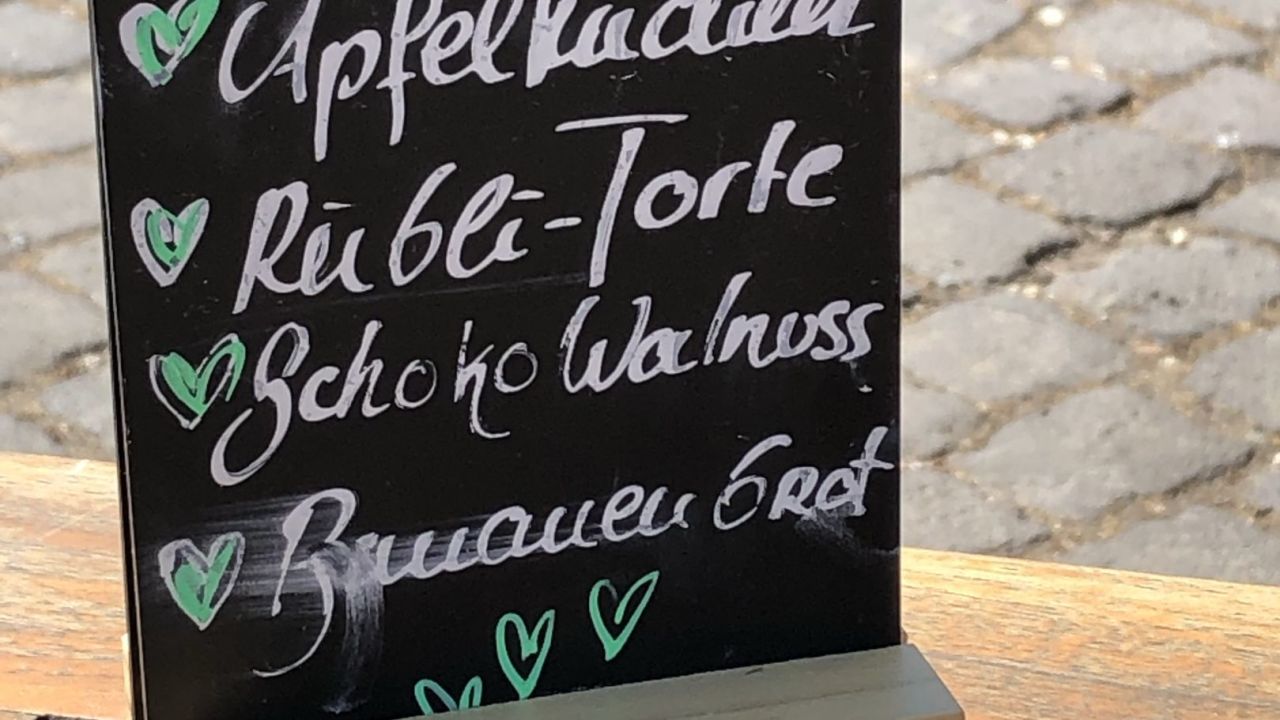 Apfelkuchen
Rübli-Torte
Schoko Walnuss
Bananenbrot